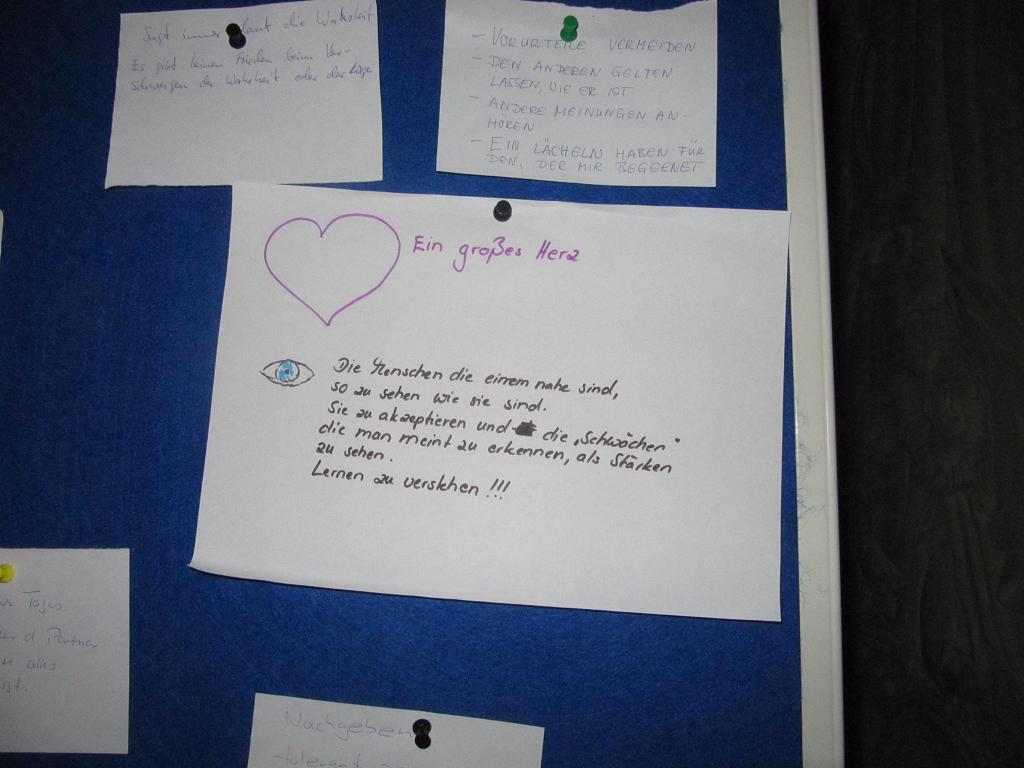 Sagt immer laut die Wahrheit
Es gibt keinen Frieden beim Ver-
schweigen der Wahrheit oder der Lüge
- VORURTEILE VERMEIDEN
- DEN ANDEREN GELTEN
LASSEN, WIE ER IST
- ANDERE MEINUNGEN AN-
HÖREN
- EIN LÄCHELN HABEN FÜR
DEN, DER MIR BEGEGNET
Ein großes Herz
Die Menschen die einem nahe sind,
so zu sehen wie sie sind.
Sie zu akzeptieren und die „Schwächen"
die man meint zu erkennen, als Stärken
zu sehen.
Lernen zu verstehen !!!
Tages
d. Partner
alles
ist.
Nachgeben
tolerant